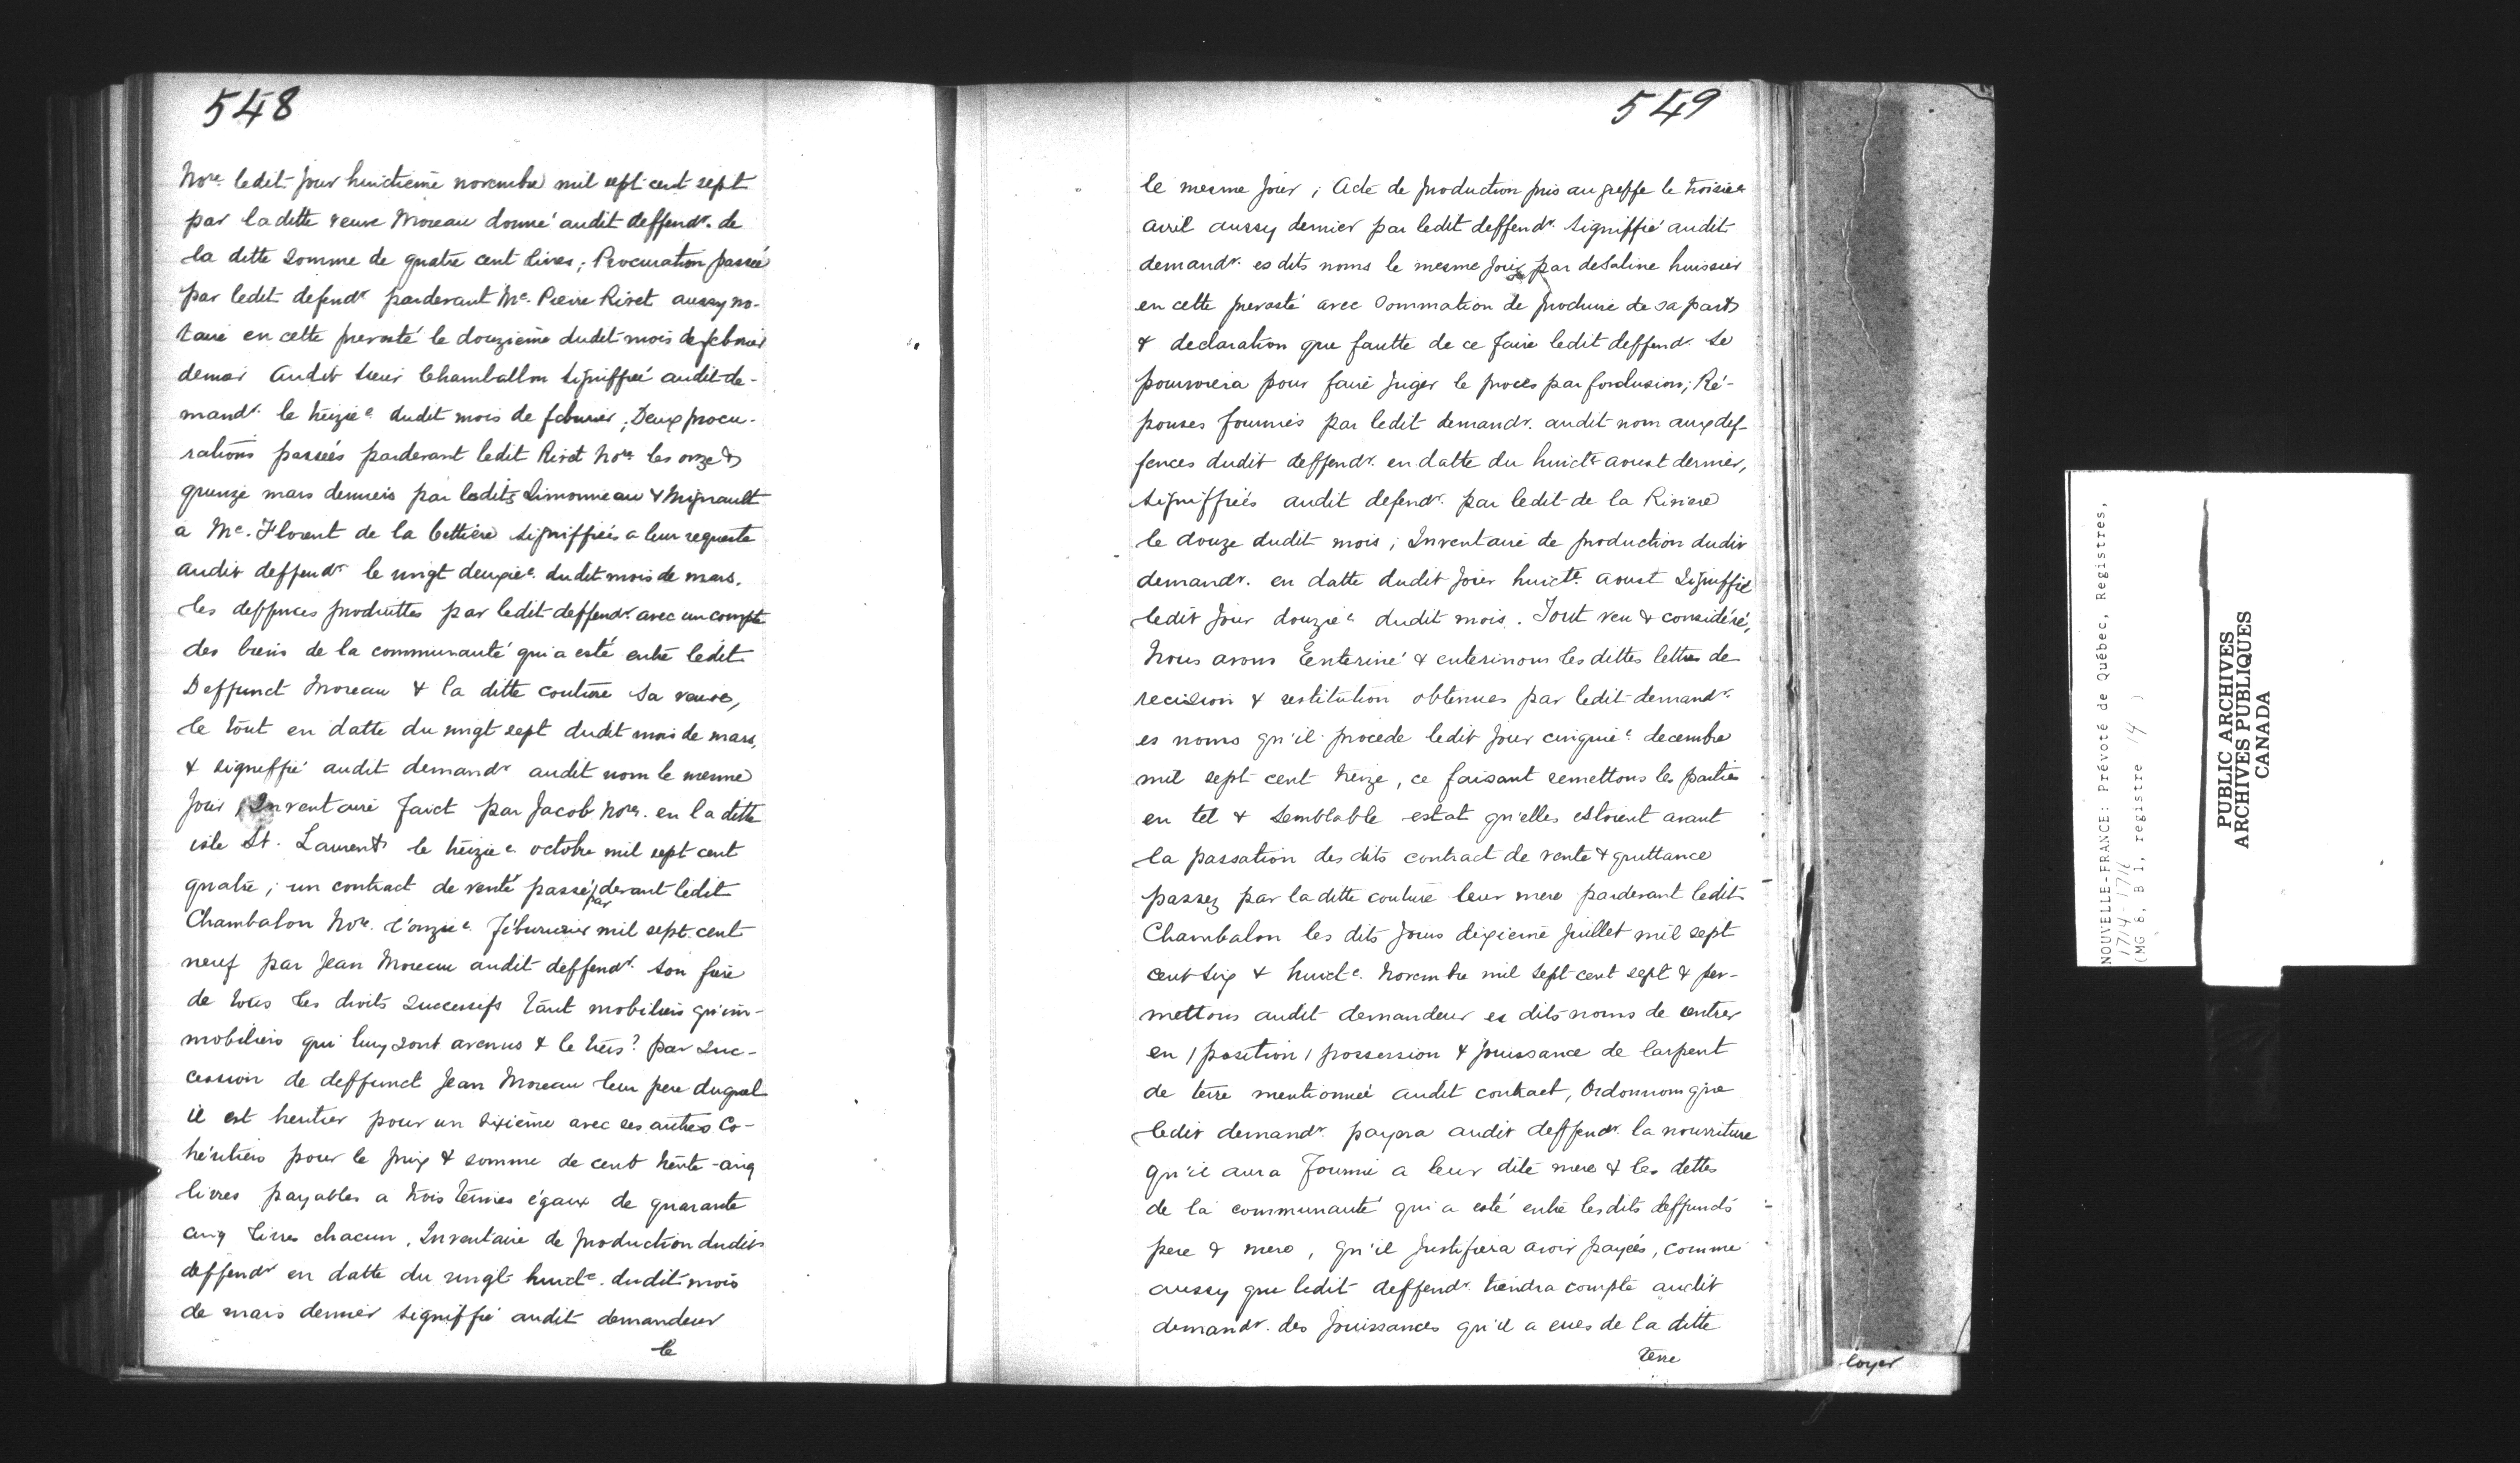 548
Nore. ledit jour huictieme novembre mil sept cent sept
par laditte veuve Moreau donné audit deffendr. de
la ditte somme de quatre cent livres; Procuration passée
par ledit defendr pardevant Me. Pierre Rivet aussy no-
taire en cette prevosté le douzieme dudit mois de febvrier
dernier audit sieur Chamballon signiffié audit de-
mandr. le treizie. dudit mois de febvrier; Deux procu-
rations passées pardevant ledit Rivet Nore les onze &
quinze mars derniers par lesdits Simonneau & Mignault
a Me. Florent de la Cettiere signiffiés a leur requeste
audit deffendr le vingt deuxie. dudit mois de mars.
les deffences produittes par ledit deffendr. avec un compte
des biens de la communauté qui a esté entre ledit
Deffunct Moreau & la ditte couture sa veuve,
le tout en datte du vingt sept dudit mois de mars,
& signeffié audit demandr audit nom le mesme
jour; Inventaire faict par Jacob Nore. en la ditte
isle St. Laurent le treizie. octobre mil sept cent
quatre; un contract de vente passé par devant ledit
Chambalon Nore. l'onzie. Febvrier mil sept cent
neuf par Jean Moreau audit deffendr. son frere
de tous les droits successifs tant mobiliers qu'im-
mobiliers qui luy sont avenus & le tiers? par suc-
cession de deffunct Jean Moreau leur pere duquel
il est heritier pour un sixieme avec ses autres co-
héritiers pour le prix & somme de cent trente-cinq
livres payables a trois termes égaux de quarante
cinq livres chacun. Inventaire de production dudit
deffendr en datte du vingt huicte. dudit mois
de mars dernier signiffié audit demandeur
le
549
le mesme jour; Acte de production pris au greffe le troisie
avril aussy dernier par ledit deffendr. signiffié audit
demandr. es dits noms le mesme jour par deSaline huissier
en cette prevosté avec sommation de produire de sa part
& declaration que fautte de ce faire ledit deffendr. se
pourvoiera pour faire juger le proces par forclusion; Ré-
ponses fournies par ledit demandr. audit nom aux def-
fences dudit deffendr. en datte du huicte aoust dernier,
signiffiés audit defendr. par ledit de la Riviere
le douze dudit mois; Inventaire de production dudit
demandr. en datte dudit jour huicte. aoust signiffié
ledit jour douzie. dudit mois. Tout veu & considéré,
Nous avons Eenteriné & enterinons les dittes lettres de
recision & restitution obtenues par ledit demandr.
es noms qu'il procede ledit jour cinquie. decembre
mil sept cent treize, ce faisant remettons les parties
en tel & semblable estat qu'elles estoient avant
la passation des dits contract de vente & quittance
passez par laditte couture leur mere pardevant ledit
Chambalon les dits jours dixieme juillet mil sept
cent six & huicte. Novembre mil sept cent sept & per-
mettons audit demandeur es dits noms de rentrer
en / position / possession & jouissance de larpent
de terre mentionnée audit contract, Ordonnons que
ledit demandr. payera audit deffendr. la nourriture
qu'il aura fournie a leur dite mere & les dettes
de la communauté qui a esté entre lesdits deffuncts
pere & mere, qu'il justifiera avoir payées, comme
aussy que ledit deffendr. tiendra compte audit
demandr. des jouissances qu'il a eues de la ditte
terre
loyer
NOUVELLE-FRANCE: Prévôté de Québec, Registres,
1714-1716
(MG 8, B 1, registre 14 )
PUBLIC ARCHIVES
ARCHIVES PUBLIQUES
CANADA